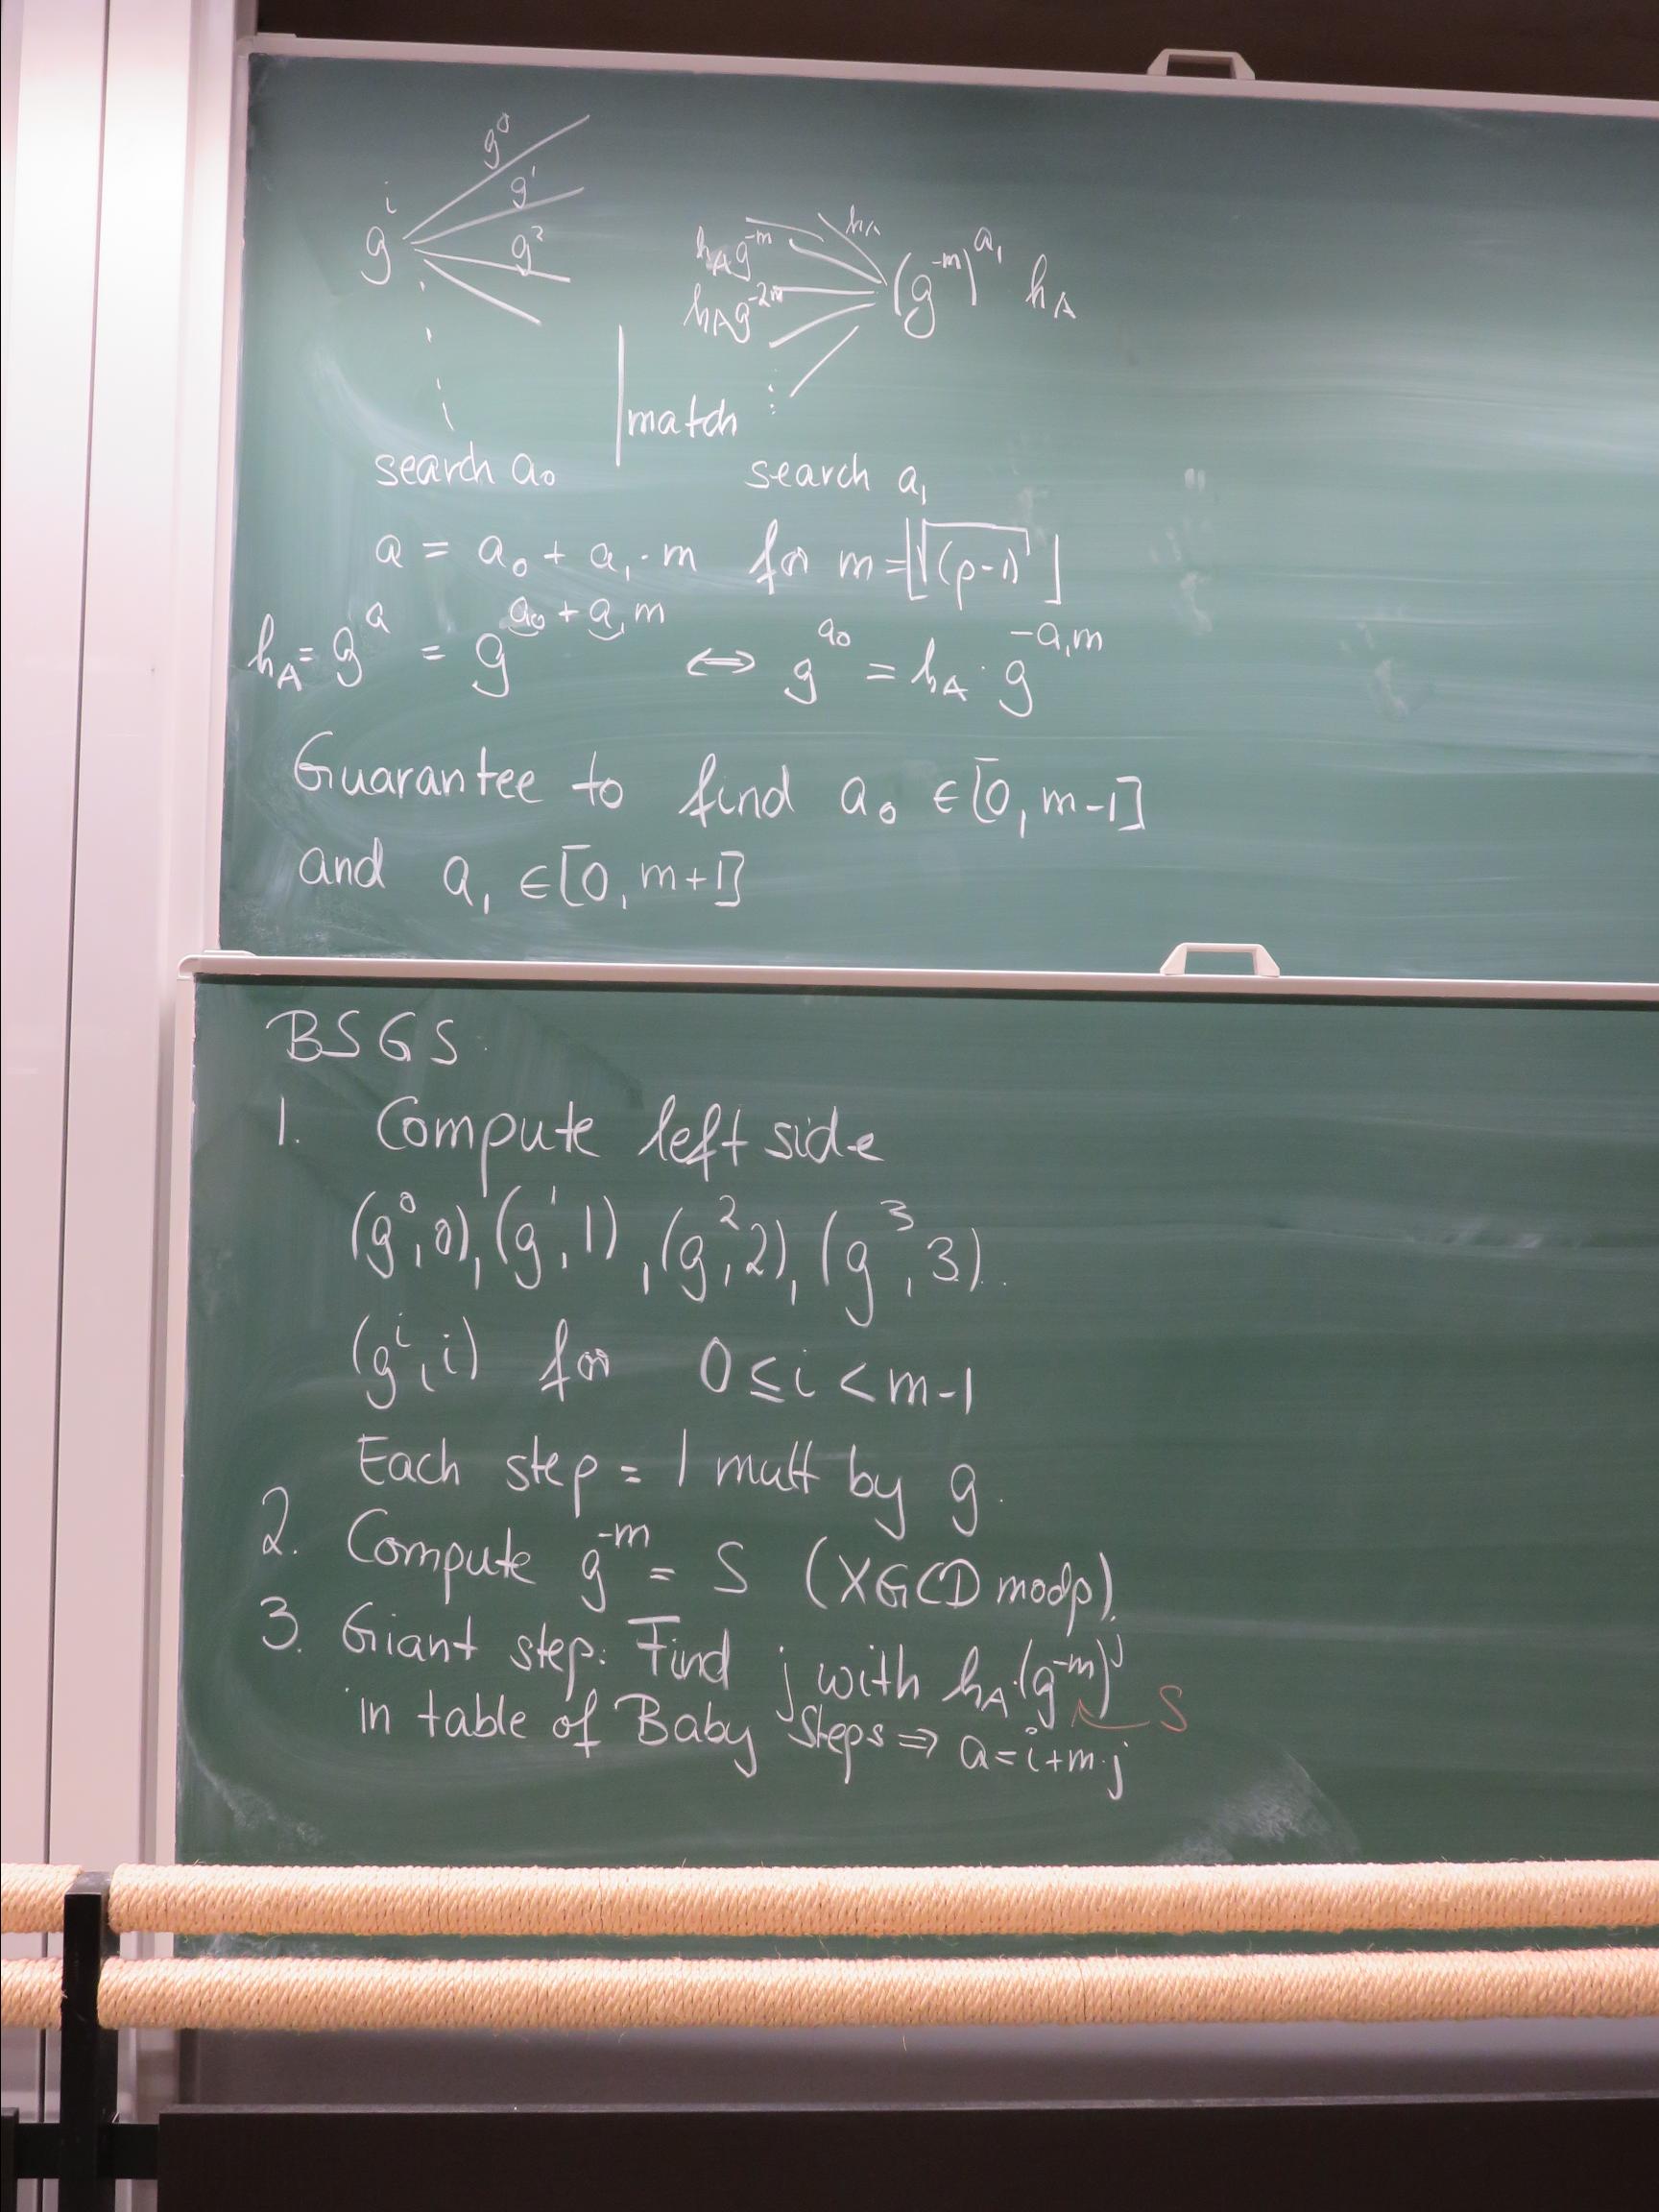 g^i g^0
g^1
g^2
h_A
h_A g^{-m} (g^{-m})^{a_1} h_A
h_A g^{-2m}
match
search a_0 search a_1
a = a_0 + a_1 · m for m = ⌊√(p-1)⌋
h_A = g^a = g^{a_0 + a_1 m} ⇔ g^{a_0} = h_A · g^{-a_1 m}
Guarantee to find a_0 ∈ [0, m-1]
and a_1 ∈ [0, m+1]
BSGS
1. Compute left side
(g^0, 0), (g^1, 1), (g^2, 2), (g^3, 3)..
(g^i, i) for 0 ≤ i < m-1
Each step = 1 mult by g.
2. Compute g^{-m} = S (XGCD mod p).
3. Giant step: Find j with h_A · (g^{-m})^j
S
in table of Baby steps ⇒ a = i + m · j